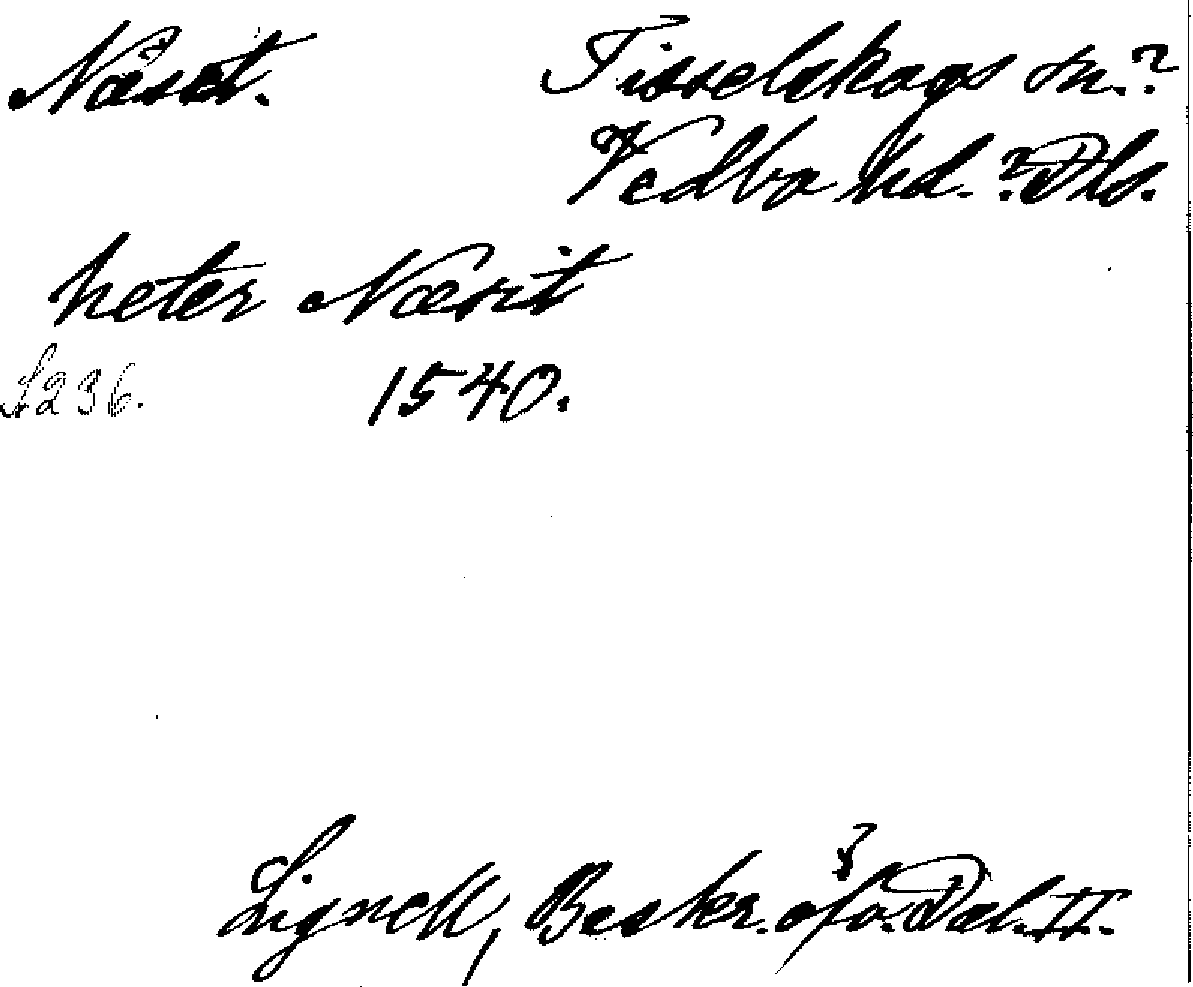 Näset. Tisselskogs sn.?
Vedbo hd.? Dls.
heter Næsit
S. 236. 1540.
Lignell, Beskr. öfv. Dal. II.